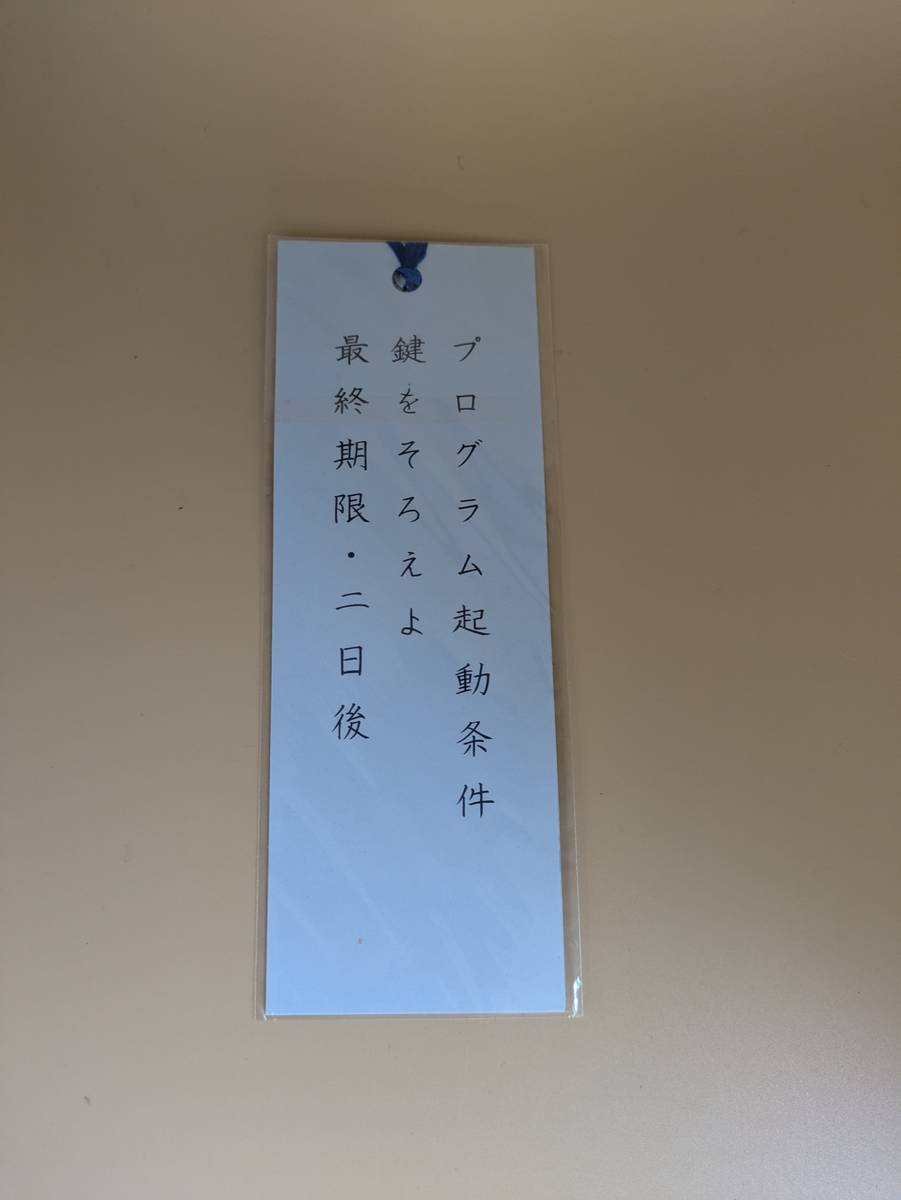 プログラム起動条件
鍵をそろえよ
最終期限・二日後